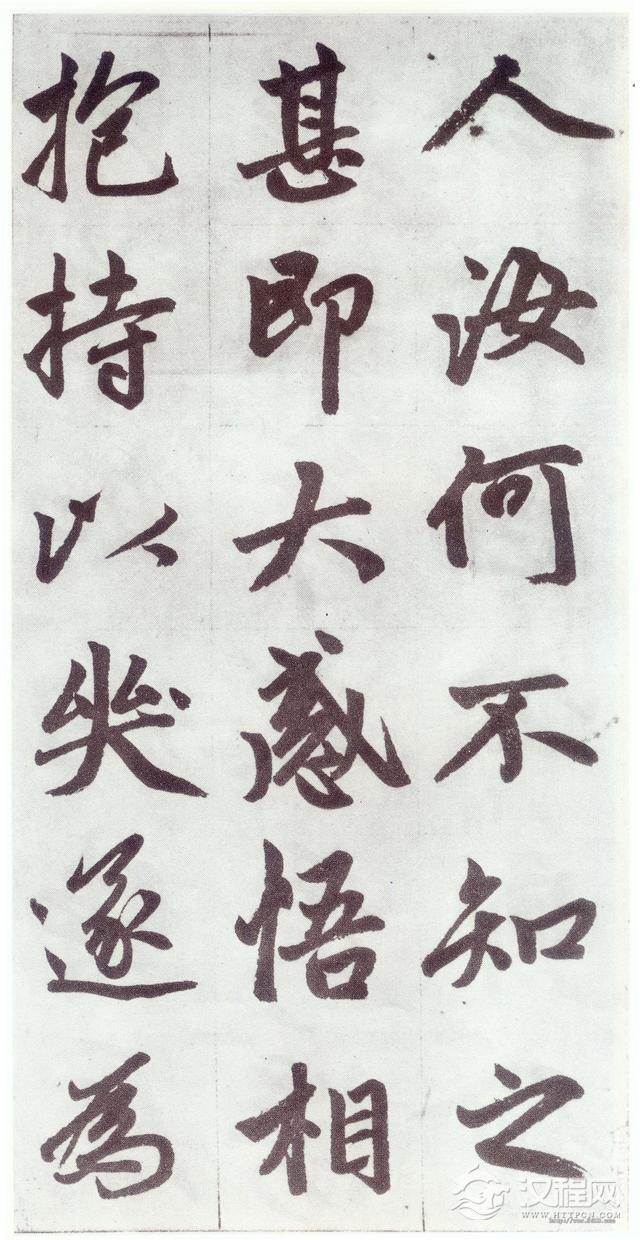 人汝何不知之
甚即大感悟相
抱持以哭遂為
汉程网
WWW.HTTPCN.COM